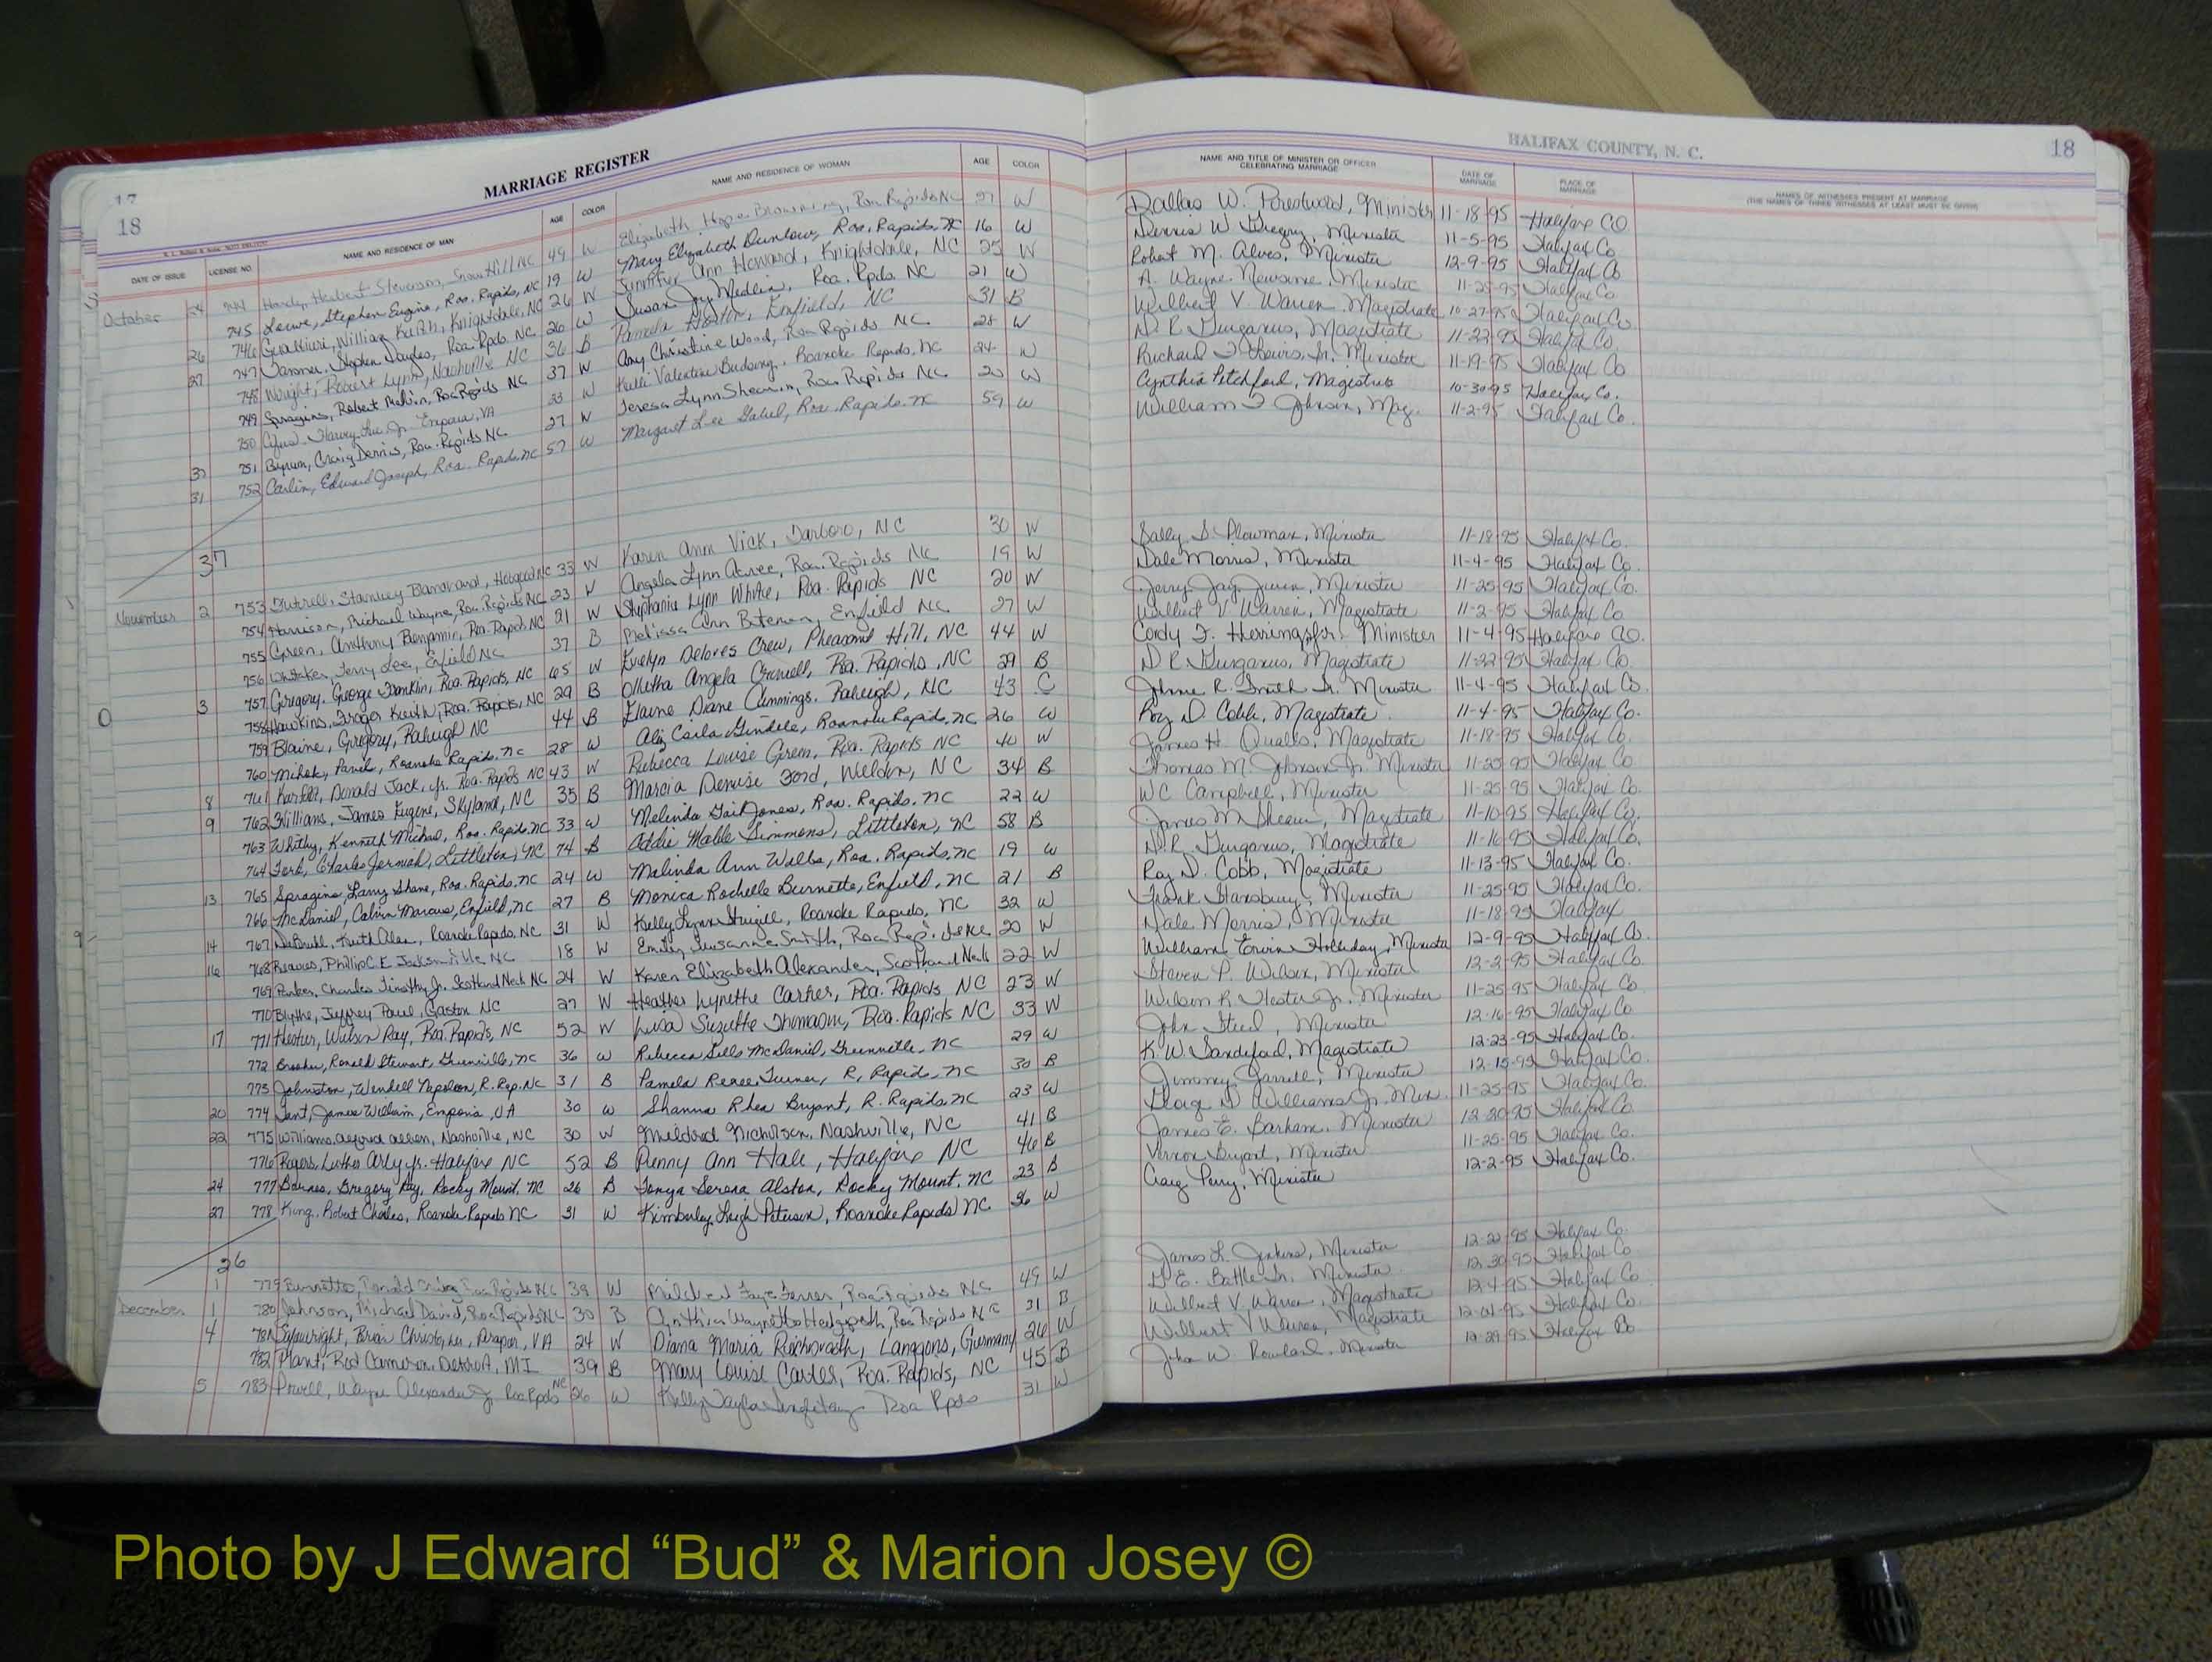 17
18
MARRIAGE REGISTER
HALIFAX COUNTY, N. C.
18
DATE OF ISSUE LICENSE NO. NAME AND RESIDENCE OF MAN AGE COLOR NAME AND RESIDENCE OF WOMAN AGE COLOR
NAME AND TITLE OF MINISTER OR OFFICER CELEBRATING MARRIAGE DATE OF MARRIAGE PLACE OF MARRIAGE NAMES OF WITNESSES PRESENT AT MARRIAGE
(THE NAMES OF THREE WITNESSES AT LEAST MUST BE GIVEN)
October 24 744 Hardy, Herbert Stevenson, Snow Hill NC 49 W Elizabeth Hope Browning, Roa. Rapids NC 27 W Dallas W. Minister 11-18-95 Halifax CO
745 Lowe, Stephen Eugene, Roa. Rapids, NC 19 W Mary Elizabeth Dunlow, Roa. Rapids, NC 16 W Dennis W Gregory, Minister 11-5-95 Halifax Co
26 746 William Keith, Knightdale, NC 26 W Jennifer Ann Howard, Knightdale, NC 25 W Robert M. Alves, Minister 12-9-95 Halifax Co
27 747 Stephen Douglas, Roa. Rpds. NC 26 W Susan Joy Medlin, Roa. Rpds. NC 21 W A. Wayne Newsome, Minister 11-25-95 Halifax Co.
748 Wright, Robert Lynn, Nashville NC 36 B Pamela Enfield, NC 31 B Wilbert V. Warren Magistrate 10-27-95 Halifax Co.
749 Spragins, Robert Melvin, Roa Rapids NC 37 W Amy Christine Wood, Roa Rapids NC 28 W D. R. Gurganus, Magistrate 11-22-95 Halifax Co.
750 Harvey Lee Jr Emporia, VA 33 W Kelli Valentine Roanoke Rapids, NC 24 W Richard Minister 11-19-95 Halifax Co
30 751 Bynum, Craig Dennis, Roa. Rapids NC 27 W Teresa Lynn Shearin, Roa Rapids NC 20 W Cynthia Pitchford, Magistrate 10-30-95 Halifax Co.
31 752 Carlin, Edward Joseph, Roa. Rapids, NC 57 W Margaret Lee Roa. Rapids, NC 59 W William F Johnson, Mag. 11-2-95 Halifax Co.
37
November 2 753 Futrell, Stanley Hobgood NC 33 W Karen Ann Vick, Tarboro, NC 30 W Sally S. Plowman, Minister 11-18-95 Halifax Co.
754 Harrison, Michael Wayne, Roa. Rapids NC 23 W Angela Lynn Acree, Roa. Rapids NC 19 W Dale Morris, Minister 11-4-95 Halifax Co.
755 Green, Anthony Benjamin, Roa. Rapids, NC 21 W Stephanie Lynn White, Roa. Rapids NC 20 W Jerry Jay Minister 11-25-95 Halifax Co.
756 Whitaker, Terry Lee, Enfield NC 37 B Melissa Ann Enfield NC 27 W Wilbert V. Warren, Magistrate 11-2-95 Halifax Co
3 757 Gregory, George Franklin, Roa. Rapids, NC 65 W Evelyn Delores Crew, Pleasant Hill, NC 44 W Cordy F. Herring, Jr. Minister 11-4-95 Halifax Co.
758 Hawkins, Keith, Roa. Rapids, NC 29 B Angela Roa. Rapids, NC 29 B D. R. Gurganus, Magistrate 11-22-95 Halifax Co.
759 Blaine, Gregory, Raleigh NC 44 B Elaine Diane Cummings, Raleigh, NC 43 C R. Smith Sr. Minister 11-4-95 Halifax Co
760 Milek, Pavel, Roanoke Rapids, NC 28 W Carla Roanoke Rapids, NC 26 W Roy D. Cobb, Magistrate 11-4-95 Halifax Co.
8 761 Donald Jack, Jr. Roa. Rapids NC 43 W Rebecca Louise Green, Roa. Rapids NC 40 W James H. Qualls, Magistrate 11-18-95 Halifax Co.
9 762 Williams, James Eugene, Skyland, NC 35 B Marcia Denise Ford, Weldon, NC 34 B Thomas M. Johnson Jr. Minister 11-25-95 Halifax Co
763 Whitby, Kenneth Michael, Roa. Rapids, NC 33 W Melinda Gail Jones, Roa. Rapids, NC 22 W WC Campbell, Minister 11-25-95 Halifax Co.
764 Charles Jermiah, Littleton, NC 74 B Addie Mable Simmons, Littleton, NC 58 B James M Shearin, Magistrate 11-10-95 Halifax Co.
13 765 Spragins, Larry Shane, Roa. Rapids, NC 24 W Malinda Ann Walls, Roa. Rapids, NC 19 W D. R. Gurganus, Magistrate 11-16-95 Halifax Co.
766 McDaniel, Calvin Marcus, Enfield, NC 27 B Monica Rochelle Burnette, Enfield, NC 21 B Roy D. Cobb, Magistrate 11-13-95 Halifax Co.
14 767 Keith Alan, Roanoke Rapids, NC 31 W Kelly Lynn Roanoke Rapids, NC 32 W Frank Stansbury, Minister 11-25-95 Halifax Co.
16 768 Reaves, Phillip C E Jacksonville NC 18 W Emily Susanne Smith, 20 W Dale Morris, Minister 11-18-95 Halifax
769 Parker, Charles Timothy Jr. Scotland Neck NC 24 W Karen Elizabeth Alexander, Scotland Neck 22 W William Ervin Holliday, Minister 12-9-95 Halifax Co.
770 Blythe, Jeffrey Paul, Gaston NC 27 W Heather Lynette Carter, Roa. Rapids NC 23 W Steven P. Wilson, Minister 12-2-95 Halifax Co.
17 771 Hester, Wilson Ray, Roa. Rapids, NC 52 W Lisa Suzette Roa. Rapids NC 33 W Wilson R. Hester Jr. Minister 11-25-95 Halifax Co
772 Ronald Stewart, Greenville, NC 36 W Rebecca Sills McDaniel, Greenville, NC 29 W John Steed, Minister 12-16-95 Halifax Co
773 Johnston, Wendell Napoleon, R. Rap. NC 31 B Pamela Renee Turner, R. Rapids, NC 30 B K. W. Sandeford, Magistrate 12-23-95 Halifax Co.
20 774 James William, Emporia, VA 30 W Shanna Rhea Bryant, R. Rapids, NC 23 W Jimmy Jarrell, Minister 12-15-95 Halifax Co.
22 775 Williams, Allen, Nashville, NC 30 W Mildred Nicholson, Nashville, NC 41 B Williams Jr. Min. 11-25-95 Halifax Co.
776 Rogers, Luther Arly Jr. Halifax NC 52 B Penny Ann Hale, Halifax NC 46 B James E. Barham, Minister 12-30-95 Halifax Co
24 777 Barnes, Gregory Ray, Rocky Mount, NC 26 B Tonya Serena Alston, Rocky Mount, NC 23 B Vernon Bryant, Minister 11-25-95 Halifax Co.
27 778 King, Robert Charles, Roanoke Rapids NC 31 W Kimberley Leigh Petersen, Roanoke Rapids NC 36 W Craig Perry, Minister 12-2-95 Halifax Co.
26
December 1 779 Burnette, Ronald Roa Rapids NC 39 W Mildred Faye Roa Rapids NC 49 W James L. Jenkins, Minister 12-22-95 Halifax Co.
1 780 Johnson, Michael David, Roa Rapids NC 30 B Cynthia Waynette Hedgepeth, Roa Rapids NC 31 B E. Battle Sr. Minister 12-30-95 Halifax Co
4 781 Brian Christopher, VA 24 W Diana Maria Langgons, Germany 26 W Wilbert V. Warren, Magistrate 12-4-95 Halifax Co
782 Plant, Rod Cameron, Detroit, MI 39 B Mary Louise Carter, Roa. Rapids, NC 45 B Wilbert V Warren, Magistrate Halifax Co.
5 783 Powell, Wayne Alexander Jr Roa Rpds NC 26 W Kelly Taylor Roa Rpds 31 W John W. Rowland, Minister 12-29-95 Halifax Co
Photo by J Edward “Bud” & Marion Josey ©